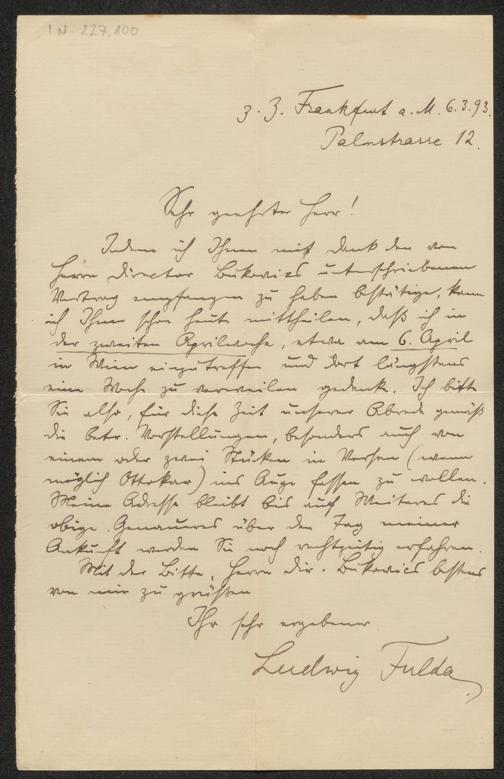 IN-227.100
z. Z. Frankfurt a. M. 6.3.93.
Palmstrasse 12.
Sehr geehrter Herr!
Indem ich Ihnen mit Dank den von
Herrn Director Bukovics unterschriebenen
Vertrag empfangen zu haben bestätige, kann
ich Ihnen schon heute mittheilen, daß ich in
der zweiten Aprilwoche, etwa am 6. April
in Wien einzutreffen und dort längstens
eine Woche zu verweilen gedenke. Ich bitte
Sie also, für diese Zeit unserer Abrede gemäß
die betr. Vorstellungen, besonders auch von
einem oder zwei Stücken in Versen (wenn
möglich Ottokar) ins Auge fassen zu wollen.
Meine Adresse bleibt bis auf Weiteres die
obige. Genaueres über den Tag meiner
Ankunft werden Sie noch rechtzeitig erfahren.
Mit der Bitte, Herrn Dir. Bukovics bestens
von mir zu grüßen
Ihr sehr ergebener
Ludwig Fulda